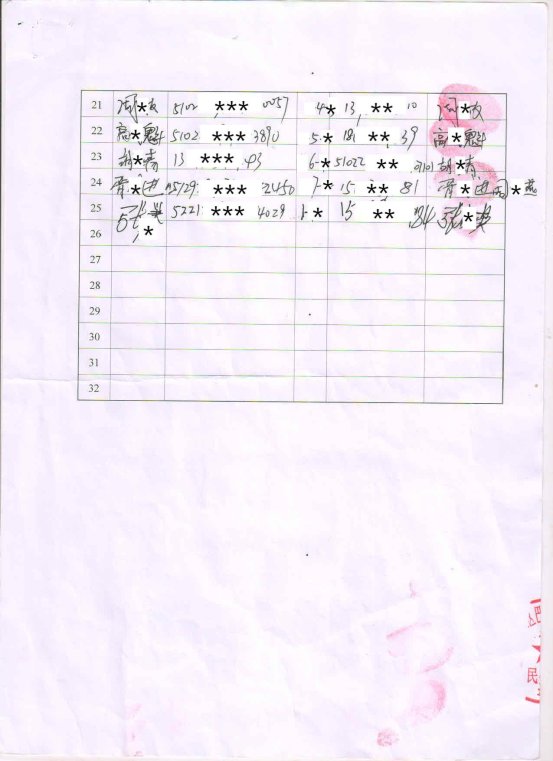 21 *友 5102 *** 0057 4* 13 ** 10 *友
22 高*魁 5102 *** 3890 5* 181 ** 39 高*魁
23 胡*青 13 *** 43 6-* 51022 ** 0101 胡*青
24 *进 *** 2450 7-* 15 ** 81 *进 周*燕
25 张*英 5221 *** 4029 1-* 15 ** 84 张*英
26 *
27
28
29
30
31
32
民